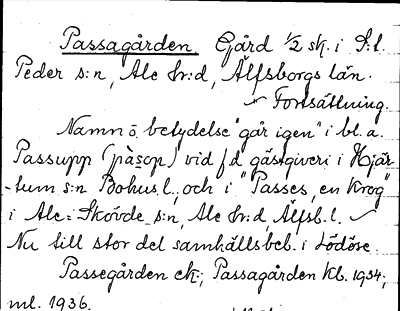 Passagården Gård 1/2 sk. i S:t
Peder s:n, Ale hr:d, Älfsborgs län.
Fortsättning.
Namn o. betydelse "går igen" i bl. a.
Passupp (pàsop) vid f d gästgiveri i Hjär-
tum s:n Bohus l., och i "Passes, en krog"
i Ale-Skövde s:n, Ale hr:d, Älfsb. l.
Nu till stor del samhällsbeb. i Lödöse.
Passegården ek.; Passagården kb. 1934;
ml. 1936.